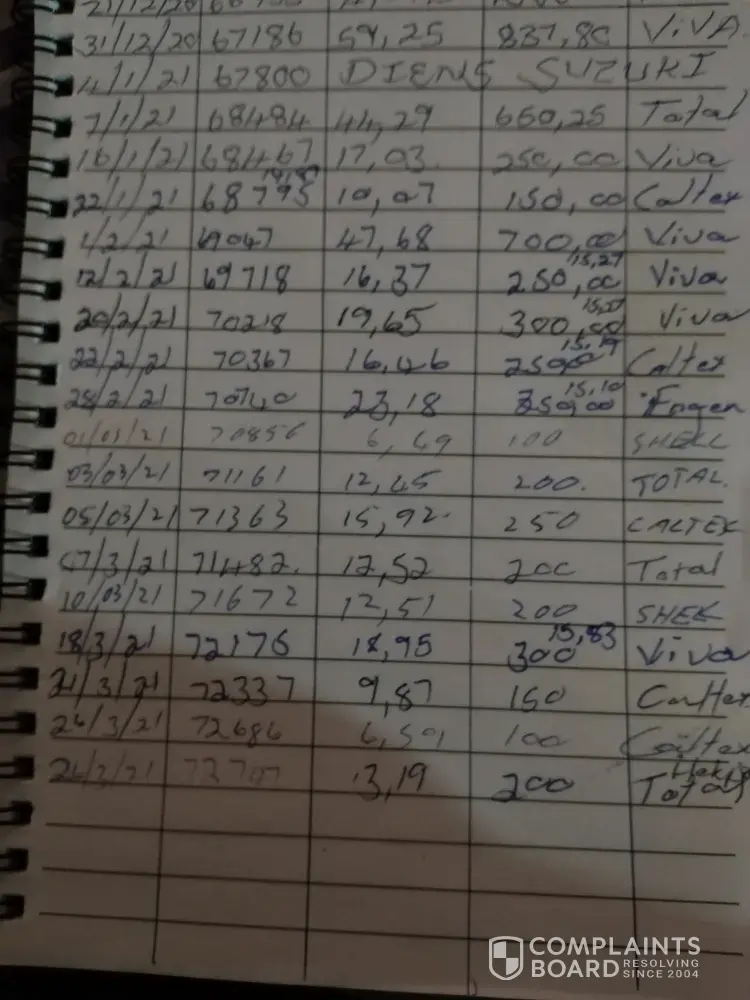 21/12/20
31/12/20 67186 59,25 837,80 ViVA
4/1/21 67800 DIENS SUZUKI
7/1/21 68484 44,29 660,25 Total
16/1/21 68467 17,03 250,00 Viva
22/1/21 68795 10,07 150,00 Caltex
1/2/21 69047 47,68 700,00 Viva
12/2/21 69718 16,37 250,00 15,27 Viva
20/2/21 70218 19,65 300,00 Viva
22/2/21 70367 16,46 250 15,19 Caltex
28/2/21 70740 23,18 350,00 15,10 Engen
01/03/21 70856 6,49 100 SHELL
03/03/21 71161 12,45 200. TOTAL.
05/03/21 71363 15,92 250 CALTEX
07/3/21 71482. 12,52 200 Total
10/03/21 71672 12,51 200 SHEll
18/3/21 72176 18,95 300 15,83 Viva
21/3/21 72337 9,87 150 Caltex
26/3/21 72686 6,59 100 Caltex
26/3/21 3,19 200 Total
COMPLAINTS
BOARD RESOLVING
SINCE 2004